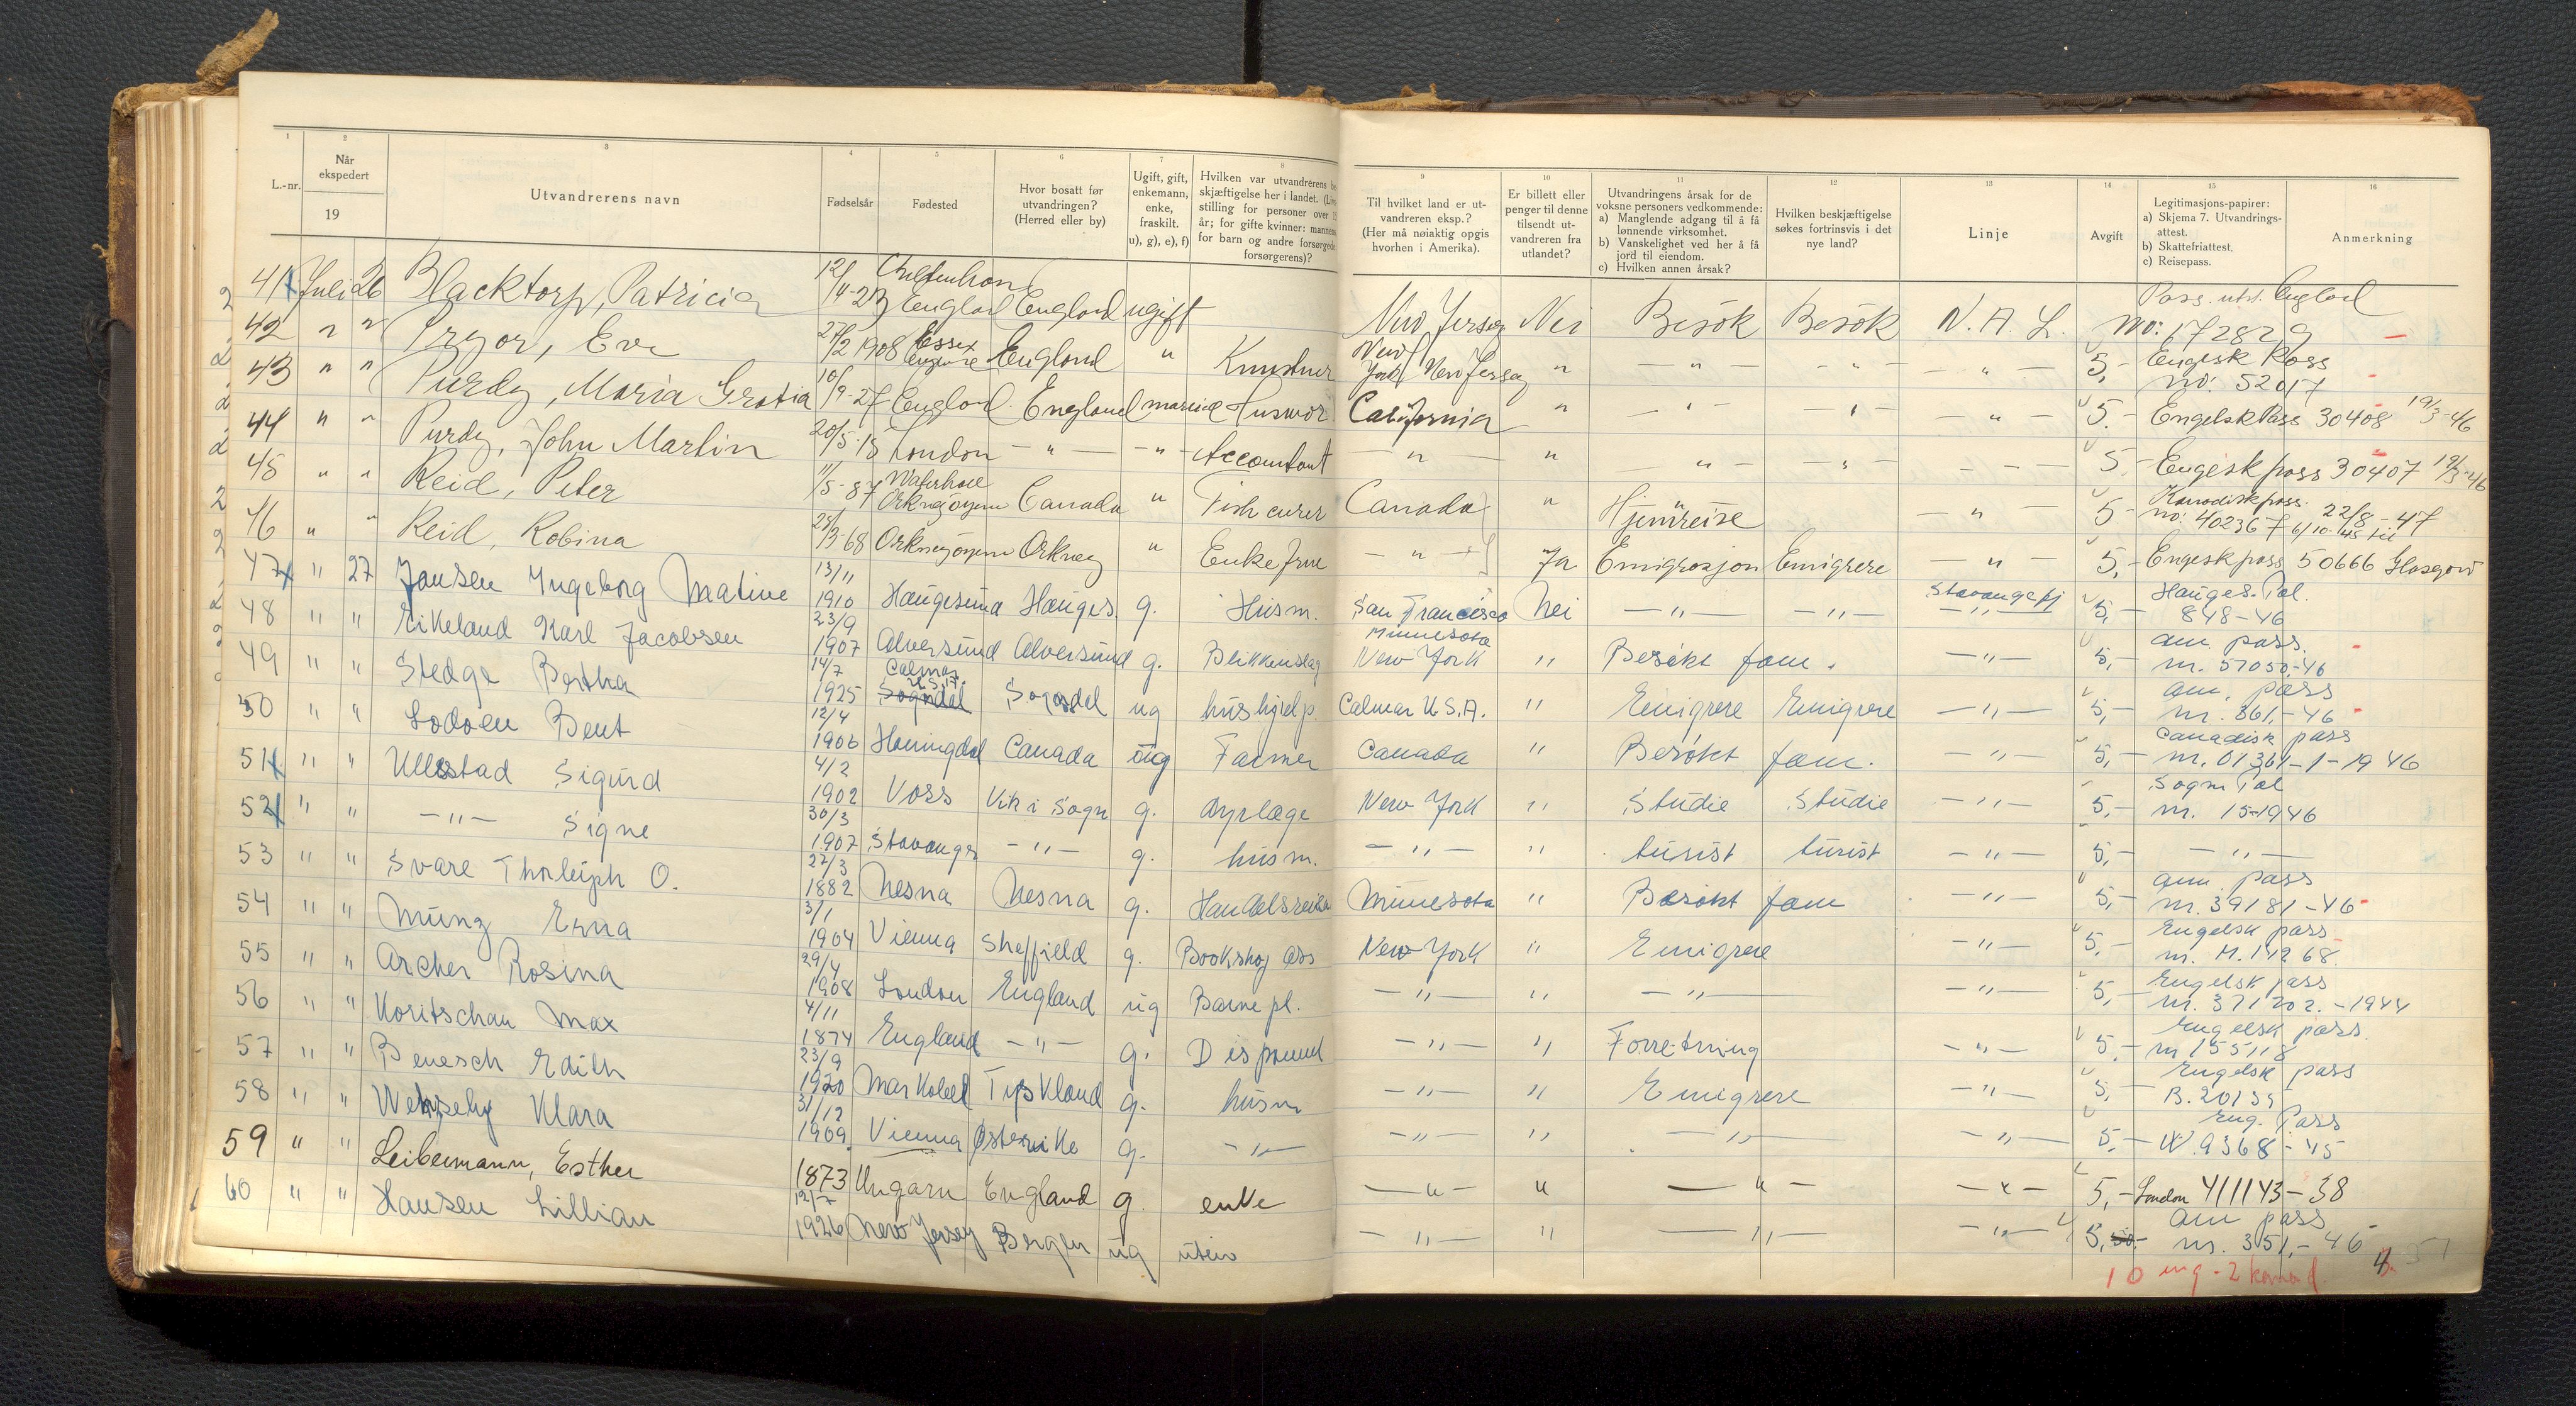 1 2 3 4 5 6 7 8 9 10 11 12 13 14 15 16
L.-nr.
Når ekspedert
19
Utvandrerens navn
Fødselsår
Fødested
Hvor bosatt før utvandringen? (Herred eller by)
Ugift, gift, enkemann, enke, fraskilt. u), g), e), f)
Hvilken var utvandrerens skjæftigelse her i landet. stilling for personer over år; for gifte kvinner: for barn og andre forsørgerens)?
Til hvilket land er utvandreren eksp.? (Her må nøiaktig opgis hvorhen i Amerika).
Er billett eller penger til denne tilsendt utvandreren fra utlandet?
Utvandringens årsak for de voksne personers vedkommende:
a) Manglende adgang til å få lønnende virksomhet.
b) Vanskelighet ved her å få jord til eiendom.
c) Hvilken annen årsak?
Hvilken beskjæftigelse søkes fortrinsvis i det nye land?
Linje
Avgift
Legitimasjons-papirer:
a) Skjema 7. Utvandringsattest.
b) Skattefriattest.
c) Reisepass.
Anmerkning
41 Juli 26 Blacktorp, Patricia 12/4-23 England England ugift New Jersey Nei Besök Besök N. A. L. Pass. utst. England no: 172829
42 " " Pryor, Eve 27/2 1908 Essex England " Kunstner New York New Jersey " — " — — " — — " — 5,- Engelsk Pass no: 52017
43 " " Purdy, Maria Gratia 10/9-27 England England married Husmor California " — " — — " — — " — 5.- Engelsk Pass 30408 19/3-46
44 " " Purdy, John Martin 20/5-18 London — " — — " — Accountant — " — " " — " — — — 5.- Engelsk pass 30407 19/3-46
45 " " Reid, Peter 11/5-87 Orknøyene Canada " Fish curer Canada " Hjemreise — " — 5- Kanadisk pass. no: 402367 6/10-45 til 22/8-47
46 " " Reid, Robina 25/3-68 Orknøyene Orkney " Enkefrue — " — Ja Emigrasjon Emigrere — " — 5,- Engelsk pass 50666 Glasgow
47 " 27 Jansen Ingeborg Matine 13/11 1910 Haugesund Hauges. g. Husm. San Francisco Nei — " — — " — Stavangerfj — " — 5,- Hauges. Pol. 848-46
48 " " Eikeland Karl Jacobsen 23/9 1907 Alversund Alversund g. Blikkenslag Minnesota New York " Besökt fam. — " — 5,- am. pass. nr. 57050-46
49 " " Stedge Bertha 14/7 1925 Calmar U.S.A. Sogndal Sogndal ug hushjelp. Calmar U.S.A. " Emigrere Emigrere — " — 5,- am. pass nr. 361.-46
50 " " Lodoen Bent 12/4 1906 Horningdal Canada ug Farmer Canada " Besökt fam. — " — 5,- Canadisk pass nr. 01361-1-1946
51 " " Ullestad Sigurd 4/2 1902 Voss Vik i Sogn g. dyrlæge New York " Studie Studie — " — 5,- Sogn Pol nr. 15-1946
52 " " — " — Signe 30/3 1907 Stavanger — " — g. husm. — " — " turist turist — " — 5,- — " —
53 " " Svare Thorleiph O. 27/3 1882 Nesna Nesna g. Handelsreise Minnesota " Besökt fam — " — 5,- am. pass nr. 39181-46
54 " " Münz Erna 3/1 1904 Vienna Sheffield g. Bookshop ass New York " Emigrere — " — 5,- Engelsk pass nr. M.14268.
55 " " Archer Rosina 29/4 1908 London England ug Barnepl. — " — " — " — — " — 5,- Engelsk pass nr. 371202.-1944
56 " " Koritschan Max 4/11 1874 England — " — g. Disponent — " — " Forretning — " — 5,- Engelsk pass. nr 155118
57 " " Benesch Edith 23/9 1920 Tyskland g. husm — " — " Emigrere — " — 5,- Engelsk pass B.20139
58 " " Klara 31/12 1909 Vienna Østerrike g. — " — — " — " — " — — " — 5,- Eng. Pass W. 9368-45
59 " " Leibermann, Esther 1873 Ungarn England g. enke — " — " — " — — " — 5,- London 411143-38
60 " " Hansen Lillian 12/7 1926 New Jersey Bergen ug uten — " — " — " — — " — 5,- am pass nr. 351,-46
10 eng - 2 kanad.